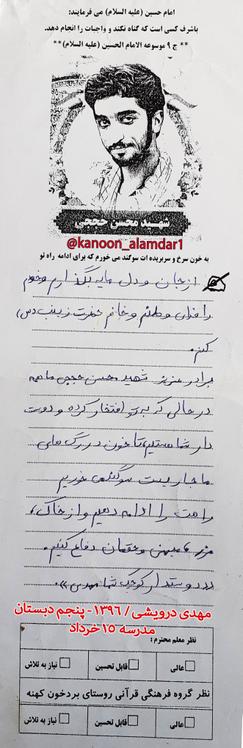 امام حسین (علیه السلام) می فرمایند:
باشرف کسی است که گناه نکند و واجبات را انجام دهد.
** ج ۹ موسوعه الامام الحسین (علیه السلام) **
شهید محسن حججی
@kanoon_alamdar1
به خون سرخ و سربریده ات سوگند می خورم که برای ادامه راه تو
از جان و دل مایه بگذارم و خودم
را فدای وطنم و خانم حضرت زینب (س)
کنم.
برادر عزیز شهید محسن حججی ما همه
در حالی که به تو افتخار کرده و دوست
دار شما هستیم تا خون در رگ های
ما جاریست سوگند می خوریم
راهت را ادامه دهیم و از خاک،
میهن و دفاع کنیم.
دوستدار کوچک شما مهدی
مهدی درویشی/ ۱۳۹۶- پنجم دبستان
مدرسه ۱۵خرداد
نظر معلم محترم:
عالی
قابل تحسین
نیاز به تلاش
نظر گروه فرهنگی قرآنی روستای بردخون کهنه
عالی
قابل تحسین
نیاز به تلاش